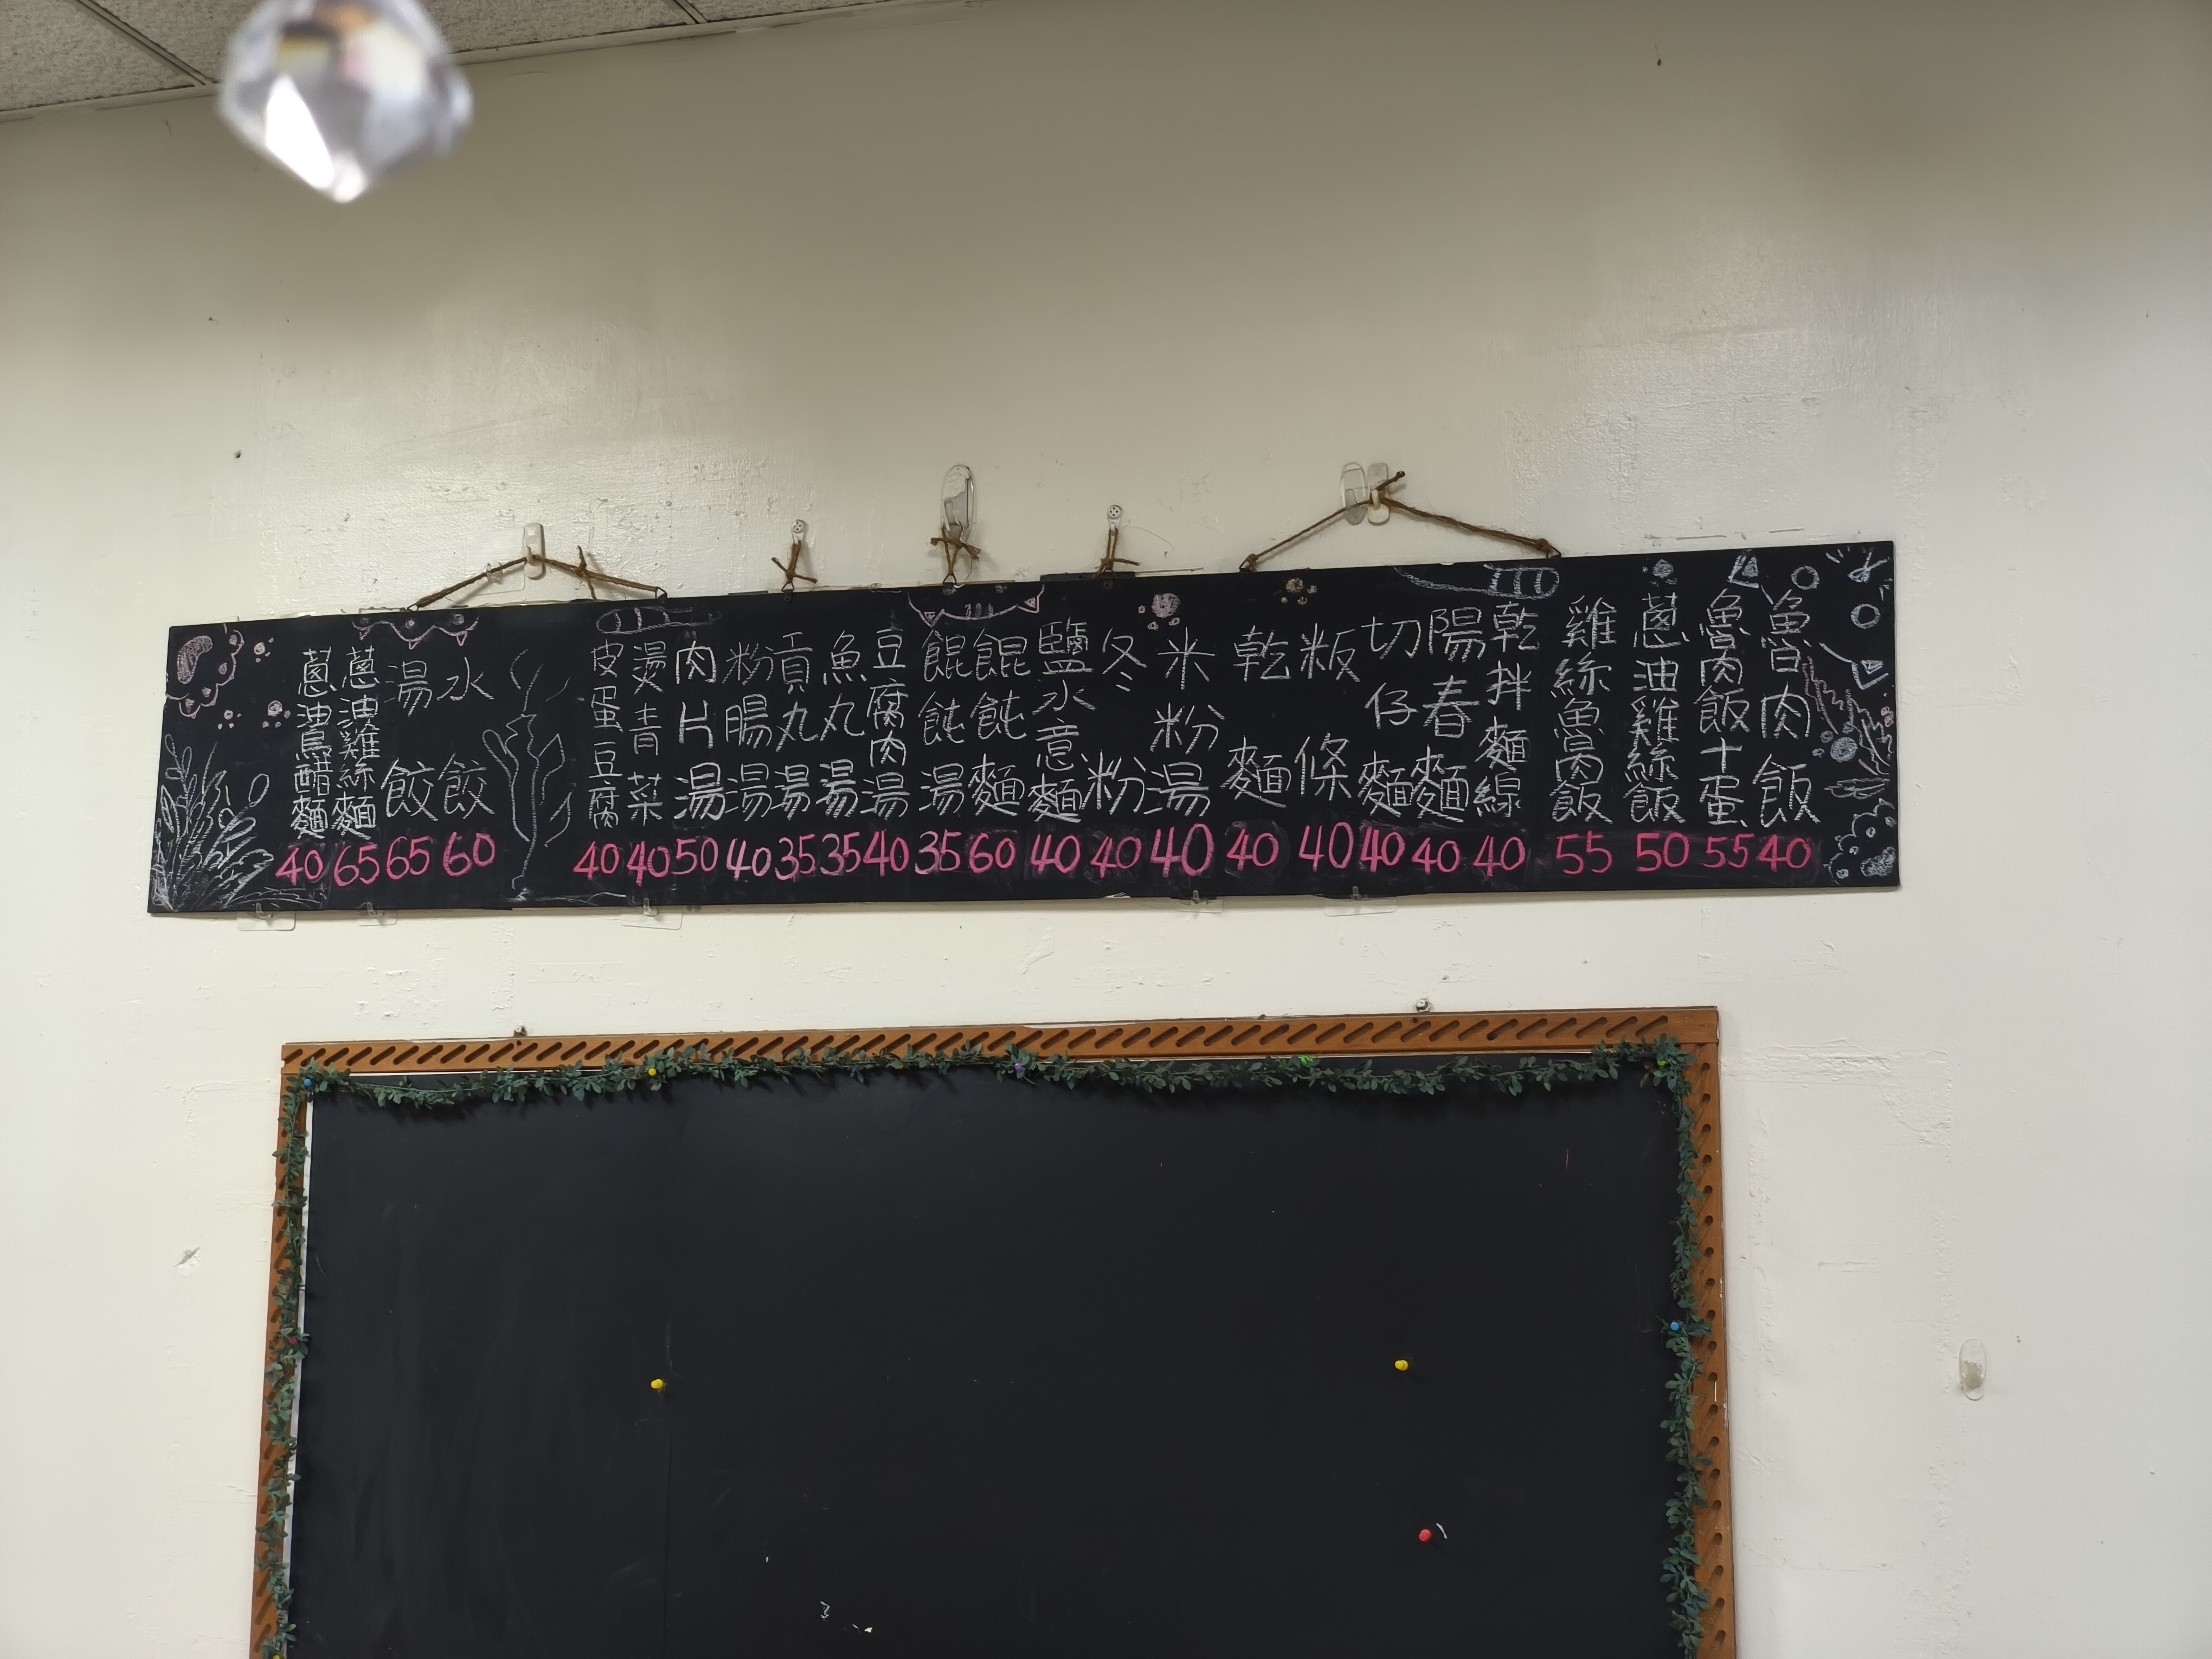 魯肉飯 40
魯肉飯十蛋 55
蔥油雞絲飯 50
雞絲魯肉飯 55
乾拌麵線 40
陽春麵 40
切仔麵 40
粄條 40
乾麵 40
米粉湯 40
冬粉 40
鹽水意麵 40
餛飩麵 60
餛飩湯 35
豆腐肉湯 40
魚丸湯 35
貢丸湯 35
粉腸湯 40
肉片湯 50
燙青菜 40
皮蛋豆腐 40
水餃 60
湯餃 65
蔥油雞絲麵 65
蔥油烏醋麵 40